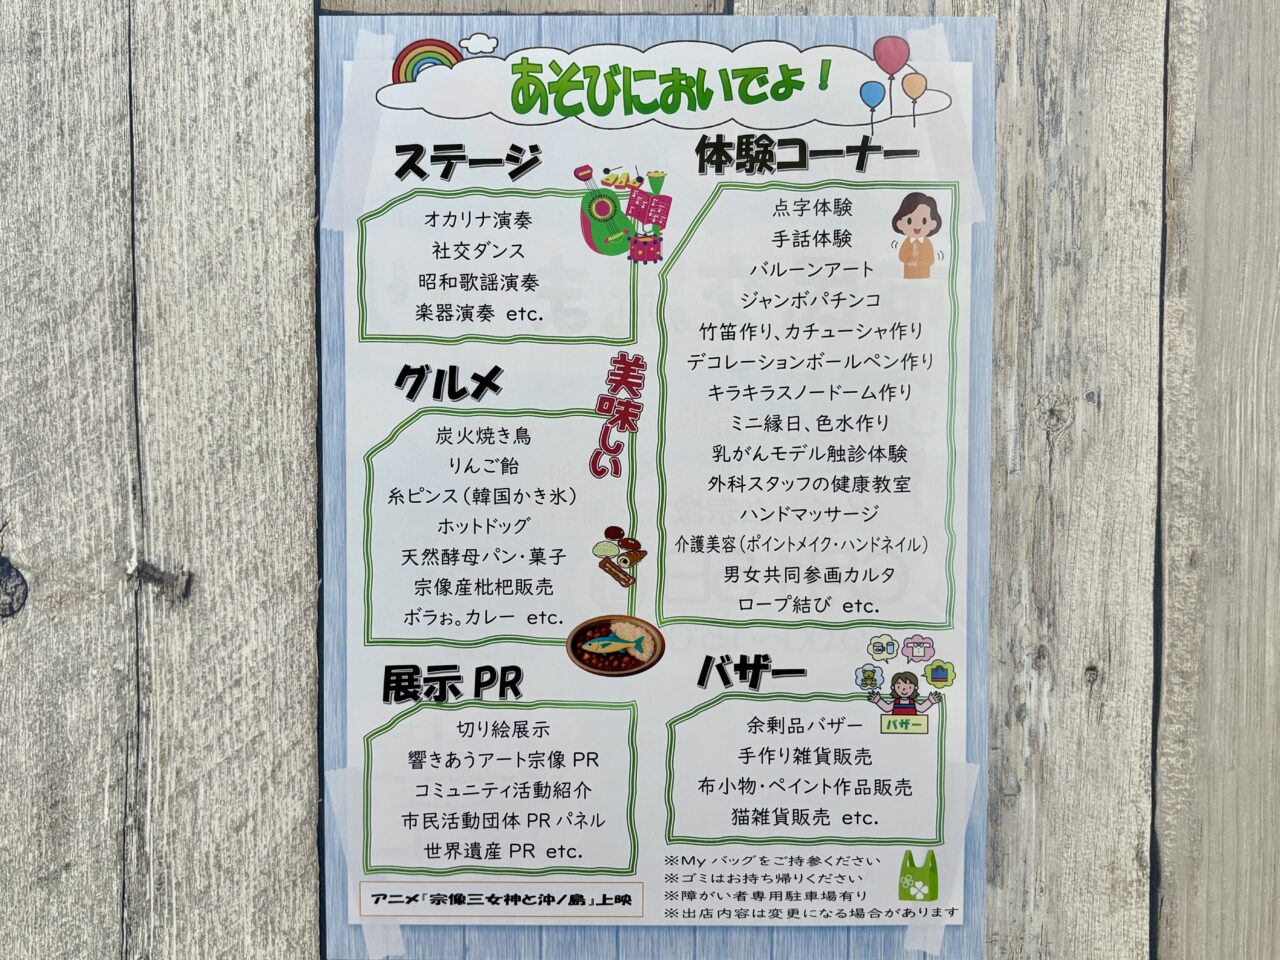 あそびにおいでよ！
ステージ
オカリナ演奏
社交ダンス
昭和歌謡演奏
楽器演奏 etc.
グルメ
美味しい
炭火焼き鳥
りんご飴
糸ピンス（韓国かき氷）
ホットドッグ
天然酵母パン・菓子
宗像産枇杷販売
ボラぉ。カレー etc.
展示 PR
切り絵展示
響きあうアート宗像 PR
コミュニティ活動紹介
市民活動団体 PR パネル
世界遺産 PR etc.
アニメ『宗像三女神と沖ノ島』上映
体験コーナー
点字体験
手話体験
バルーンアート
ジャンボパチンコ
竹笛作り、カチューシャ作り
デコレーションボールペン作り
キラキラスノードーム作り
ミニ縁日、色水作り
乳がんモデル触診体験
外科スタッフの健康教室
ハンドマッサージ
介護美容（ポイントメイク・ハンドネイル）
男女共同参画カルタ
ロープ結び etc.
バザー
バザー
余剰品バザー
手作り雑貨販売
布小物・ペイント作品販売
猫雑貨販売 etc.
※My バッグをご持参ください
※ゴミはお持ち帰りください
※障がい者専用駐車場有り
※出店内容は変更になる場合があります